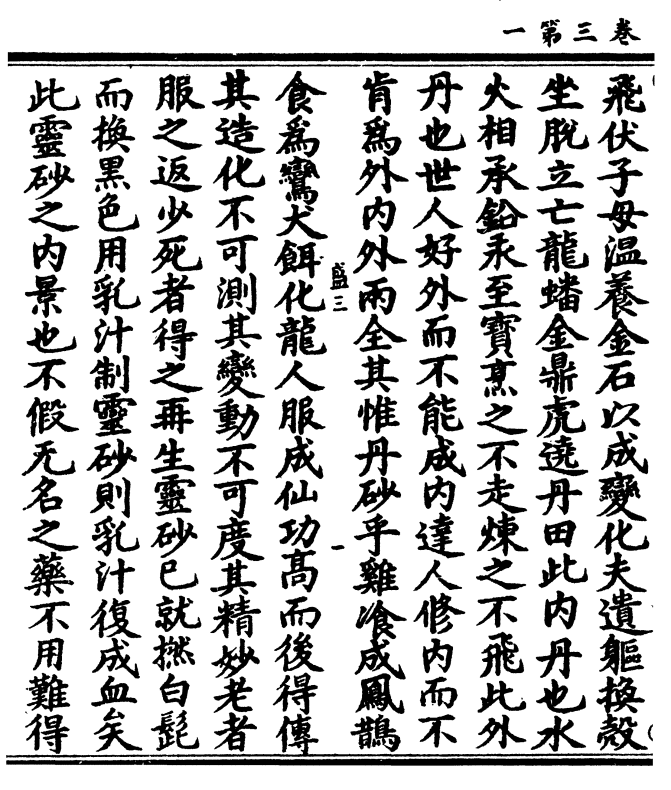 卷三第一
飛伏子母温養金石以成變化夫遺軀換殼
坐脫立亡龍蟠金鼎虎遶丹田此内丹也水
火相承鉛汞至寶烹之不走煉之不飛此外
丹也世人好外而不能成内達人修内而不
肯爲外内外兩全其惟丹砂乎雞飡成鳳鵲
盛三 一
食爲鸞犬餌化龍人服成仙功高而後得傳
其造化不可測其變動不可度其精妙老者
服之返少死者得之再生靈砂已就撚白髭
而換黑色用乳汁制靈砂則乳汁復成血矣
此靈砂之内景也不假无名之藥不用難得